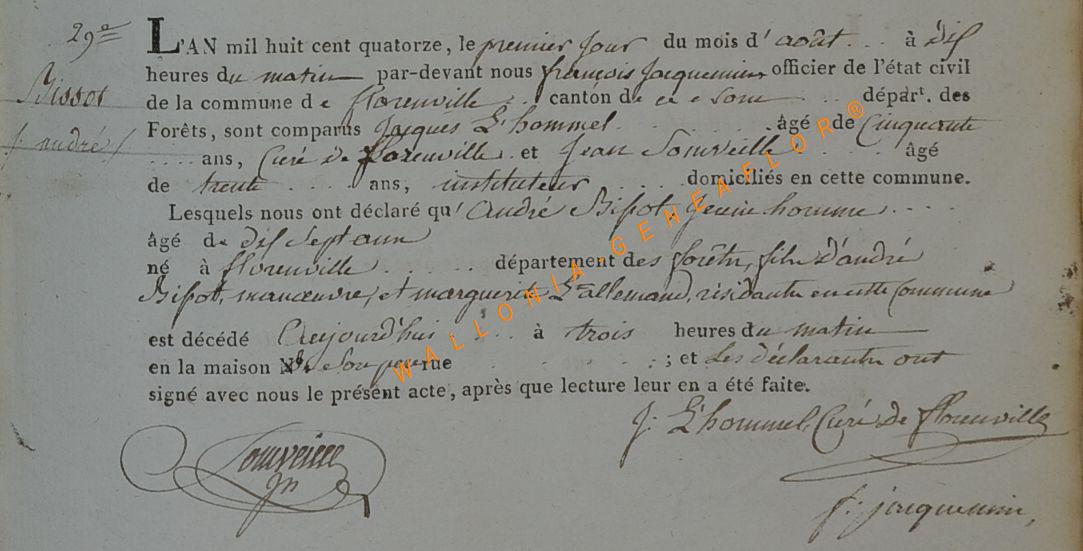 29e
Bissot
/andré/
L'AN mil huit cent quatorze, le premier jour du mois d'août à dix
heures du matin par-devant nous françois Jacquemin officier de l'état civil
de la commune de florenville canton de ce nom départ. des
Forêts, sont comparus Jacques L'hommel âgé de Cinquante
ans, Curé de florenville et Jean Somveille âgé
de trente ans, instituteur domiciliés en cette commune.
Lesquels nous ont déclaré qu'andré Bissot, Jeune homme
âgé de dix sept ans
né à florenville département des forêts, fils d'andré
Bissot, manœuvre, et marguerite L'allemand, résidants en cette Commune
est décédé Aujourd'hui à trois heures du matin
en la maison de son père rue ; et les déclarants ont
signé avec nous le présent acte, après que lecture leur en a été faite.
J: L'hommel, Curé de florenville
Somveille
f: jacquemin,
WALLONIA-GENEAFLOR®